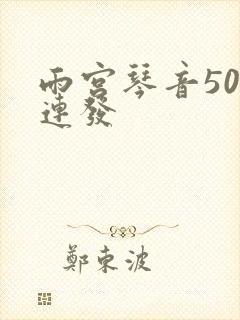 雨宮琴音50
連發
鄭東波